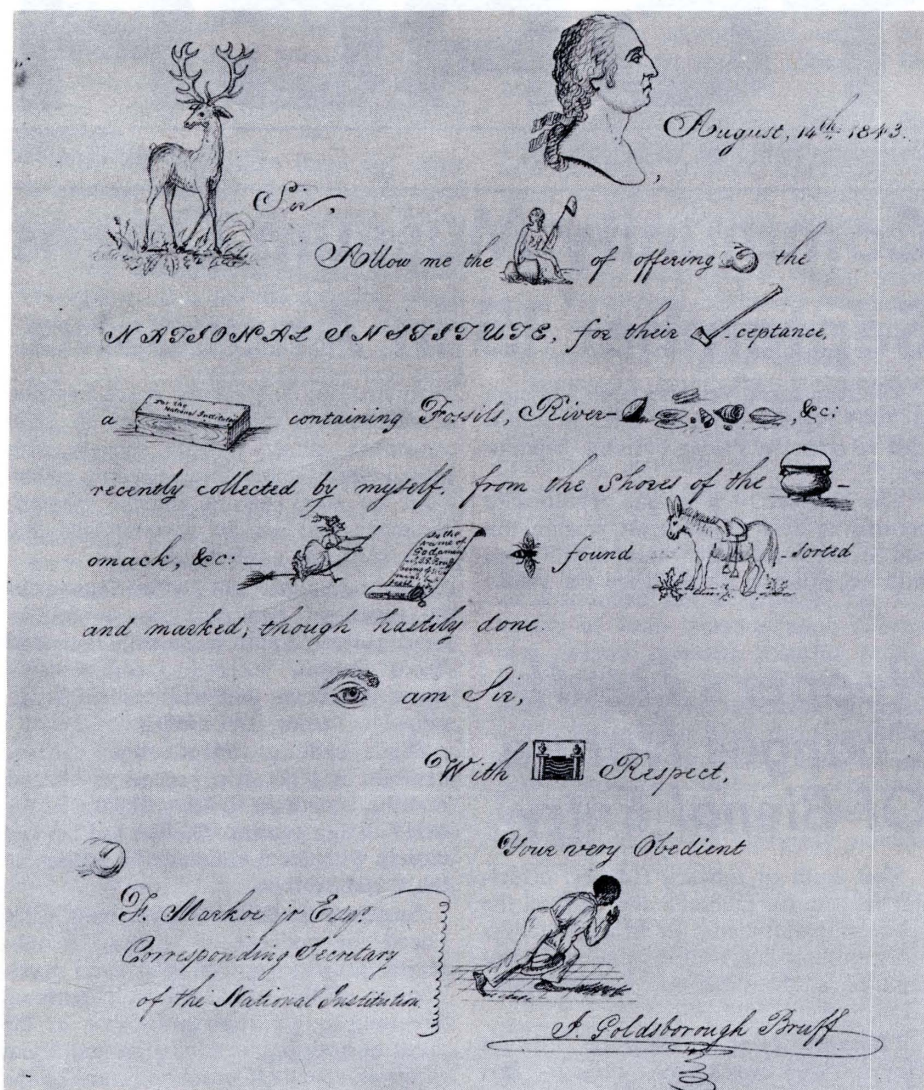 August, 14th 1843.
Sir,
Allow me the of offering the
NATIONAL INSTITUTE, for their -ceptance,
For the
National Institute
a containing Fossils, River- , &c:
recently collected by myself, from the Shores of the -
omack, &c: - found -sorted
In the
name of
God, amen
and marked; though hastily done.
am Sir,
With Respect,
Your very Obedient
F. Markoe jr Esqr.
Corresponding Secretary
of the National Institution
J. Goldsborough Bruff